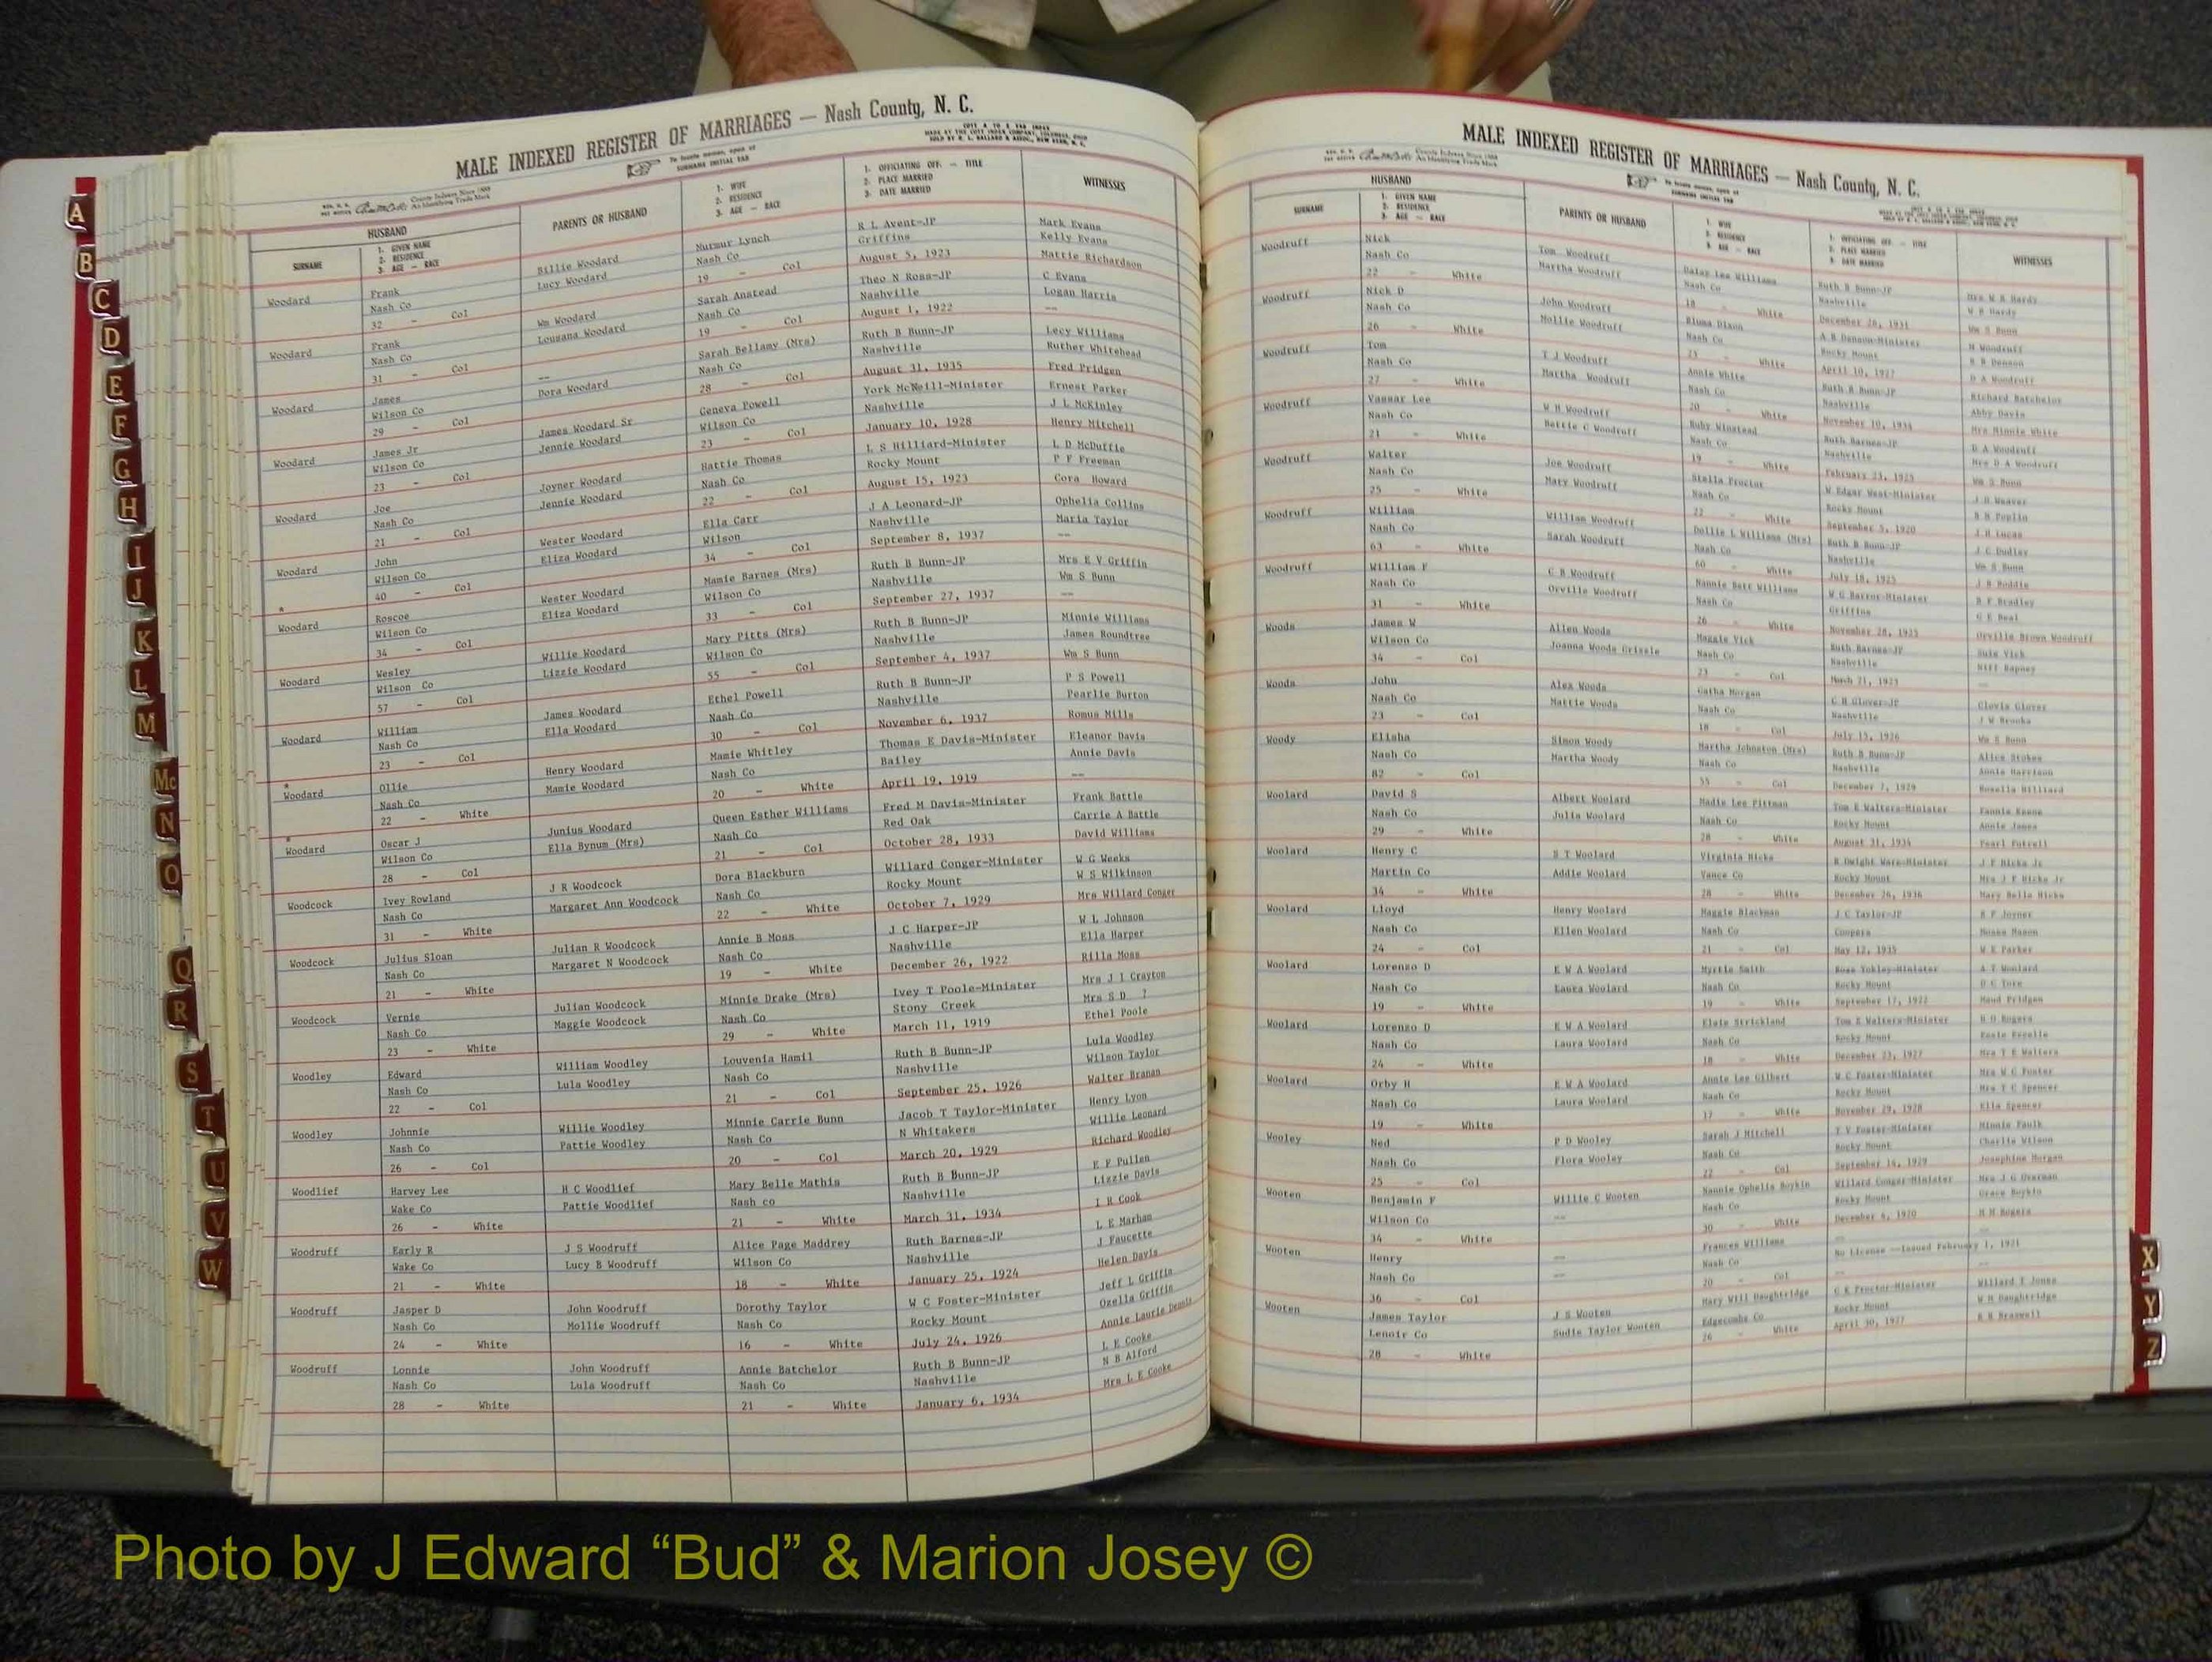 MALE INDEXED REGISTER OF MARRIAGES — Nash County, N. C.
To locate names, open at
SURNAME INITIAL TAB
COTT A TO Z TAB INDEX
MADE BY THE COTT INDEX COMPANY, COLUMBUS, OHIO
County Indexes Since 1888
An Identifying Trade Mark
HUSBAND
SURNAME
1. GIVEN NAME
2. RESIDENCE
3. AGE — RACE
PARENTS OR HUSBAND
1. WIFE
2. RESIDENCE
3. AGE — RACE
1. OFFICIATING OFF. — TITLE
2. PLACE MARRIED
3. DATE MARRIED
WITNESSES
Woodard Frank Billie Woodard Nurmur Lynch R L Avent-JP Mark Evans
Nash Co Lucy Woodard Nash Co Griffins Kelly Evans
32 - Col 19 - Col August 5, 1923 Mattie Richardson
Woodard Frank Wm Woodard Sarah Anstead Theo N Ross-JP C Evans
Nash Co Lousana Woodard Nash Co Nashville Logan Harris
31 - Col 19 - Col August 1, 1922 --
Woodard James -- Sarah Bellamy (Mrs) Ruth B Bunn-JP Lecy Williams
Wilson Co Dora Woodard Nash Co Nashville Ruther Whitehead
29 - Col 28 - Col August 31, 1935 Fred Pridgen
Woodard James Jr James Woodard Sr Geneva Powell York McNeill-Minister Ernest Parker
Wilson Co Jennie Woodard Wilson Co Nashville J L McKinley
23 - Col 23 - Col January 10, 1928 Henry Mitchell
Woodard Joe Joyner Woodard Hattie Thomas L S Hilliard-Minister L D McDuffie
Nash Co Jennie Woodard Nash Co Rocky Mount P F Freeman
21 - Col 22 - Col August 15, 1923 Cora Howard
Woodard John Wester Woodard Ella Carr J A Leonard-JP Ophelia Collins
Wilson Co Eliza Woodard Wilson Nashville Maria Taylor
40 - Col 34 - Col September 8, 1937 --
*
Woodard Roscoe Wester Woodard Mamie Barnes (Mrs) Ruth B Bunn-JP Mrs E V Griffin
Wilson Co Eliza Woodard Wilson Co Nashville Wm S Bunn
34 - Col 33 - Col September 27, 1937 --
Woodard Wesley Willie Woodard Mary Pitts (Mrs) Ruth B Bunn-JP Minnie Williams
Wilson Co Lizzie Woodard Wilson Co Nashville James Roundtree
57 - Col 55 - Col September 4, 1937 Wm S Bunn
Woodard William James Woodard Ethel Powell Ruth B Bunn-JP P S Powell
Nash Co Ella Woodard Nash Co Nashville Pearlie Burton
23 - Col 30 - Col November 6, 1937 Romus Mills
*
Woodard Ollie Henry Woodard Mamie Whitley Thomas E Davis-Minister Eleanor Davis
Nash Co Mamie Woodard Nash Co Bailey Annie Davis
22 - White 20 - White April 19, 1919 --
*
Woodard Oscar J Junius Woodard Queen Esther Williams Fred M Davis-Minister Frank Battle
Wilson Co Ella Bynum (Mrs) Nash Co Red Oak Carrie A Battle
28 - Col 21 - Col October 28, 1933 David Williams
Woodcock Ivey Rowland J R Woodcock Dora Blackburn Willard Conger-Minister W G Weeks
Nash Co Margaret Ann Woodcock Nash Co Rocky Mount W S Wilkinson
31 - White 22 - White October 7, 1929 Mrs Willard Conger
Woodcock Julius Sloan Julian R Woodcock Annie B Moss J C Harper-JP W L Johnson
Nash Co Margaret N Woodcock Nash Co Nashville Ella Harper
21 - White 19 - White December 26, 1922 Rilla Moss
Woodcock Vernie Julian Woodcock Minnie Drake (Mrs) Ivey T Poole-Minister Mrs J I Crayton
Nash Co Maggie Woodcock Nash Co Stony Creek Mrs S D ?
23 - White 29 - White March 11, 1919 Ethel Poole
Woodley Edward William Woodley Louvenia Hamil Ruth B Bunn-JP Lula Woodley
Nash Co Lula Woodley Nash Co Nashville Wilson Taylor
22 - Col 21 - Col September 25, 1926 Walter Branan
Woodley Johnnie Willie Woodley Minnie Carrie Bunn Jacob T Taylor-Minister Henry Lyon
Nash Co Pattie Woodley Nash Co N Whitakers Willie Leonard
26 - Col 20 - Col March 20, 1929 Richard Woodley
Woodlief Harvey Lee H C Woodlief Mary Belle Mathis Ruth B Bunn-JP E F Pullen
Wake Co Pattie Woodlief Nash co Nashville Lizzie Davis
26 - White 21 - White March 31, 1934 I R Cook
Woodruff Early R J S Woodruff Alice Page Maddrey Ruth Barnes-JP L E Marham
Wake Co Lucy B Woodruff Wilson Co Nashville J Faucette
21 - White 18 - White January 25, 1924 Helen Davis
Woodruff Jasper D John Woodruff Dorothy Taylor W C Foster-Minister Jeff L Griffin
Nash Co Mollie Woodruff Nash Co Rocky Mount Ozella Griffin
24 - White 16 - White July 24, 1926 Annie Laurie Dennis
Woodruff Lonnie John Woodruff Annie Batchelor Ruth B Bunn-JP L E Cooke
Nash Co Lula Woodruff Nash Co Nashville N B Alford
28 - White 21 - White January 6, 1934 Mrs L E Cooke
MALE INDEXED REGISTER OF MARRIAGES — Nash County, N. C.
HUSBAND
SURNAME
1. GIVEN NAME
2. RESIDENCE
3. AGE — RACE
PARENTS OR HUSBAND
1. WIFE
2. RESIDENCE
3. AGE — RACE
1. OFFICIATING OFF. — TITLE
2. PLACE MARRIED
3. DATE MARRIED
WITNESSES
Woodruff Nick Tom Woodruff Daisy Lee Williams Ruth B Bunn-JP Mrs W B Hardy
Nash Co Martha Woodruff Nash Co Nashville W B Hardy
22 - White 18 - White December 26, 1931 Wm S Bunn
Woodruff Nick D John Woodruff Bluma Dixon A B Denson-Minister M Woodruff
Nash Co Mollie Woodruff Nash Co Rocky Mount Denson
26 - White 23 - White April 10, 1927 D A Woodruff
Woodruff Tom T J Woodruff Annie White Ruth B Bunn-JP Richard Batchelor
Nash Co Martha Woodruff Nash Co Nashville Abby Davis
27 - White 20 - White November 10, 1934 Mrs Minnie White
Woodruff Vassar Lee W H Woodruff Ruby Winstead Ruth Barnes-JP D A Woodruff
Nash Co Bettie C Woodruff Nash Co Nashville Mrs D A Woodruff
21 - White 19 - White February 23, 1925 Wm S Bunn
Woodruff Walter Joe Woodruff Stella Proctor W Edgar West-Minister J D Weaver
Nash Co Mary Woodruff Nash Co Rocky Mount B B Poplin
25 - White 22 - White September 5, 1920 J H Lucas
Woodruff William William Woodruff Dollie L Williams (Mrs) Ruth B Bunn-JP J C Dudley
Nash Co Sarah Woodruff Nash Co Nashville Wm S Bunn
63 - White 60 - White July 18, 1925 J B Boddie
Woodruff William F C B Woodruff Nannie Bett Williams Minister B F Bradley
Nash Co Orville Woodruff Nash Co Griffins G E Beal
31 - White 26 - White November 28, 1925 Orville Brown Woodruff
Woods James W Allen Woods Maggie Vick Ruth Barnes-JP Suie Vick
Wilson Co Joanna Woods Grissle Nash Co Nashville Rapney
34 - Col 23 - Col March 21, 1923 --
Woods John Alex Woods Gatha Morgan C H Glover-JP Clovis Glover
Nash Co Mattie Woods Nash Co Nashville J W Brooks
23 - Col 18 - Col July 15, 1926 Wm S Bunn
Woody Elisha Simon Woody Martha Johnston (Mrs) Ruth B Bunn-JP Alice Stokes
Nash Co Martha Woody Nash Co Nashville Annie Harrison
82 - Col 55 - Col December 7, 1929 Rosella Hilliard
Woolard David S Albert Woolard Madie Lee Pittman Tom E Walters-Minister Fannie Keene
Nash Co Julia Woolard Nash Co Rocky Mount Annie Jones
29 - White 28 - White August 31, 1934 Pearl Futrell
Woolard Henry C S T Woolard Virginia Hicks R Dwight Ware-Minister J F Hicks Jr
Martin Co Addie Woolard Vance Co Rocky Mount Mrs J F Hicks Jr
34 - White 28 - White December 26, 1936 Mary Bella Hicks
Woolard Lloyd Henry Woolard Maggie Blackman J C Taylor-JP B F Joyner
Nash Co Ellen Woolard Nash Co Coopers Mason
24 - Col 21 - Col May 12, 1935 W E Parker
Woolard Lorenzo D E W A Woolard Myrtle Smith Ross Yokley-Minister A T Woolard
Nash Co Laura Woolard Nash Co Rocky Mount
19 - White 19 - White September 17, 1922 Maud Pridgen
Woolard Lorenzo D E W A Woolard Elsie Strickland Tom E Walters-Minister H D Rogers
Nash Co Laura Woolard Nash Co Rocky Mount
24 - White 18 - White December 23, 1927 Mrs T E Walters
Woolard Orby H E W A Woolard Annie Lee Gilbert W C Foster-Minister Mrs W C Foster
Nash Co Laura Woolard Nash Co Rocky Mount Spencer
19 - White 17 - White November 29, 1928 Ella Spencer
Wooley Ned P D Wooley Sarah J Mitchell T V Foster-Minister Minnie Faulk
Nash Co Flora Wooley Nash Co Rocky Mount Charlie Wilson
25 - Col 22 - Col September 14, 1929 Josephine Morgan
Wooten Benjamin F Willie C Wooten Nannie Ophelia Boykin Willard Conger-Minister Mrs J G Overman
Wilson Co -- Nash Co Rocky Mount Grace Boykin
34 - White 30 - White December 4, 1920
Wooten Henry -- Frances Williams No License --Issued February 1, 1921 --
Nash Co -- Nash Co --
36 - Col 20 - Col --
Wooten James Taylor J S Wooten Mary Will Daughtridge C K Proctor-Minister Willard T Jones
Lenoir Co Sudie Taylor Wooten Edgecombe Co Rocky Mount W H Daughtridge
28 - White 26 - White April 30, 1927 Braswell
A
B
C
D
E
F
G
H
I
J
K
L
M
Mc
N
O
Q
R
S
T
U
V
W
X
Y
Z
Photo by J Edward “Bud” & Marion Josey ©